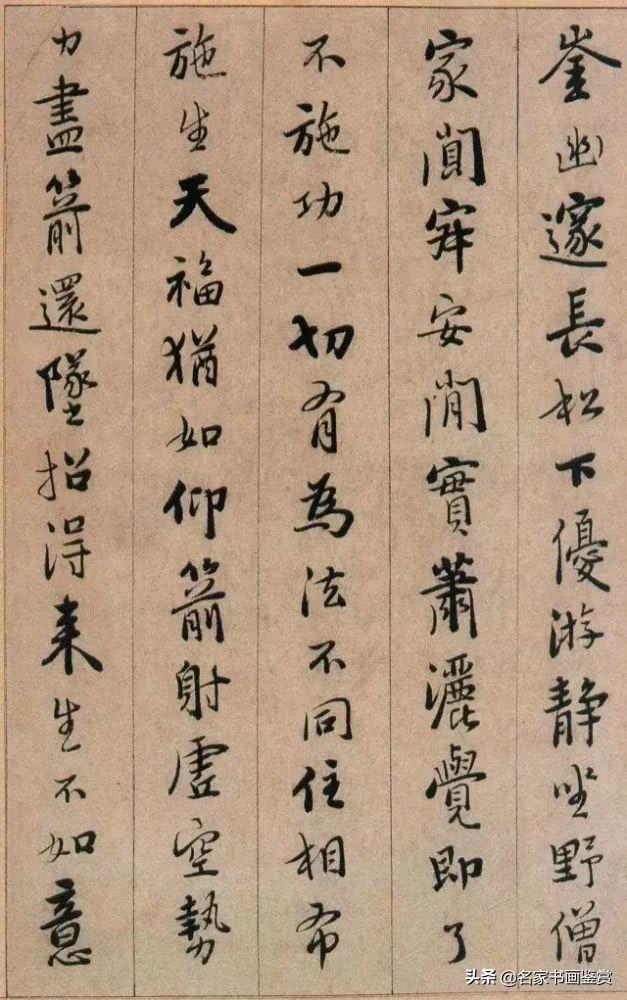 崟幽邃長松下優游靜坐野僧
家闃寂安閒實蕭灑覺即了
不施功一切有為法不同住相布
施生天福猶如仰箭射虛空勢
力盡箭還墜招得来生不如意
头条@名家书画鉴赏